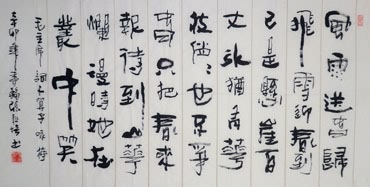 風雨送春歸
飛雪迎春到
已是懸崖百
丈冰猶有華
枝俏〻也不爭
春只把春來
報待到山華
爛漫時她在
叢中笑
毛主席詞卜算子咏梅
辛卯